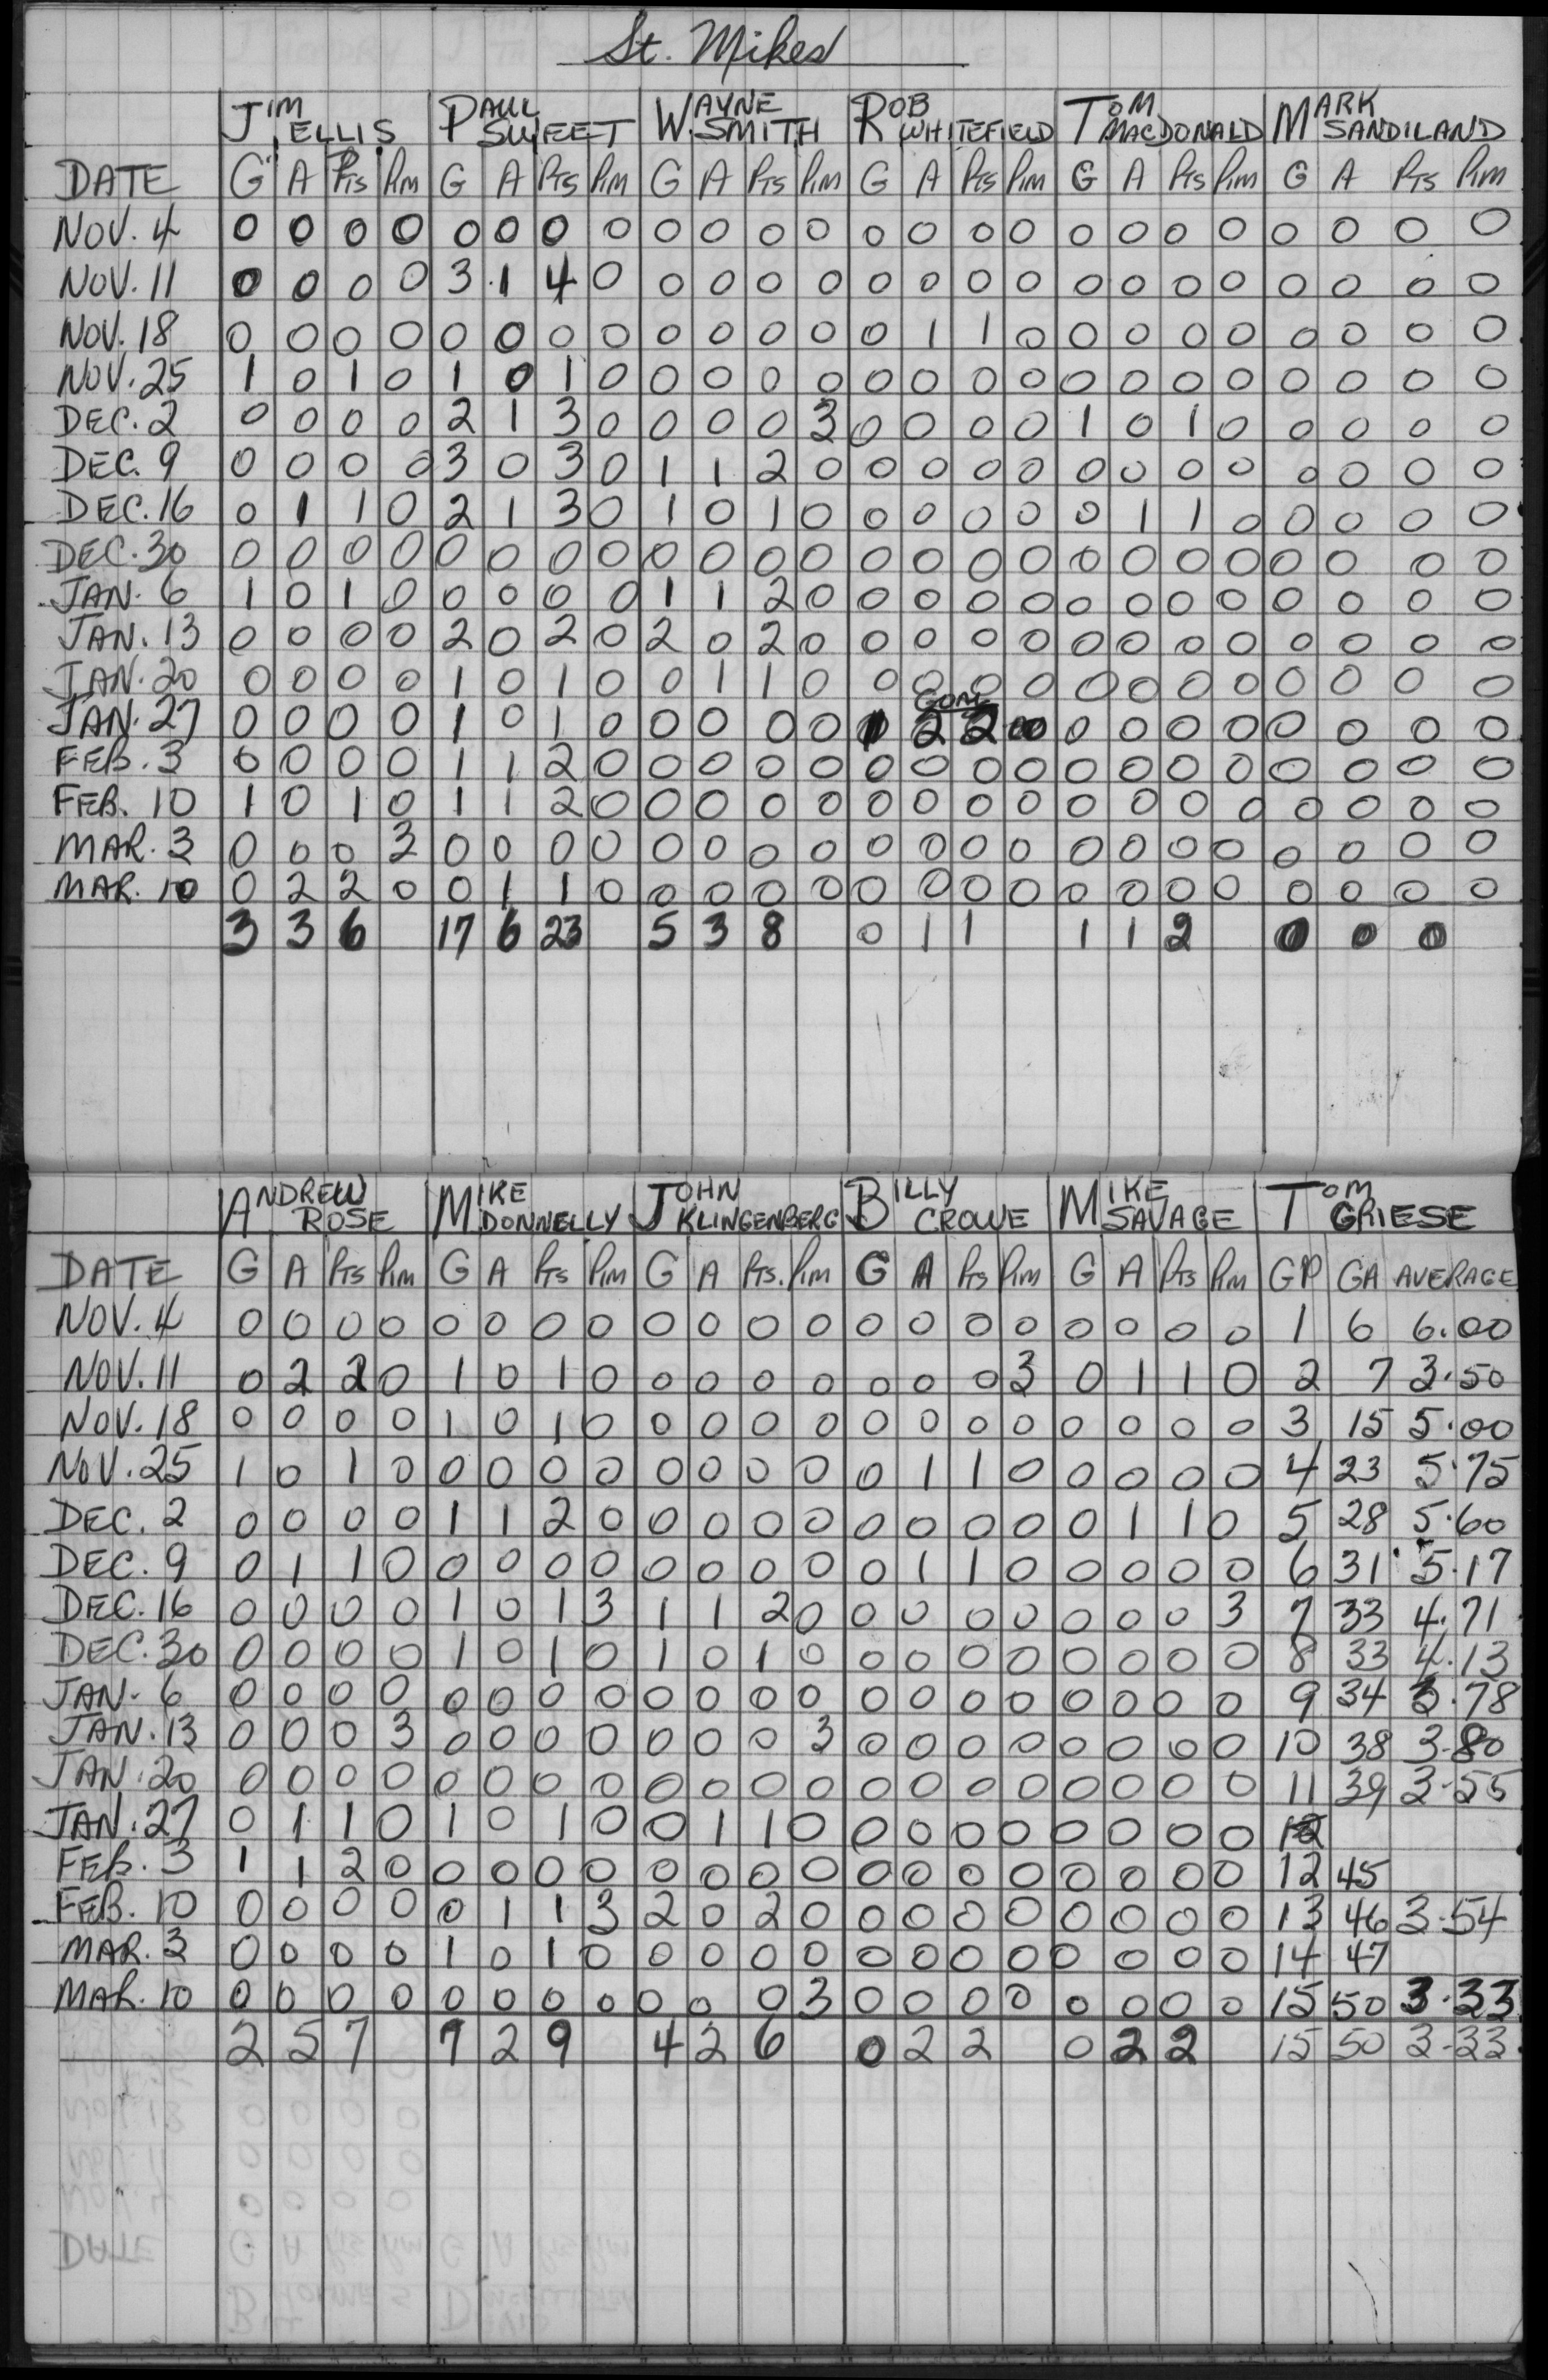 St. Mikes
JIM ELLIS PAUL SWEET WAYNE SMITH ROB WHITEFIELD TOM MACDONALD MARK SANDILAND
DATE G A Pts Pim G A Pts Pim G A Pts Pim G A Pts Pim G A Pts Pim G A Pts Pim
NOV. 4 0 0 0 0 0 0 0 0 0 0 0 0 0 0 0 0 0 0 0 0 0 0 0 0
NOV. 11 0 0 0 0 3 1 4 0 0 0 0 0 0 0 0 0 0 0 0 0 0 0 0 0
NOV. 18 0 0 0 0 0 0 0 0 0 0 0 0 0 1 1 0 0 0 0 0 0 0 0 0
NOV. 25 1 0 1 0 1 0 1 0 0 0 0 0 0 0 0 0 0 0 0 0 0 0 0 0
DEC. 2 0 0 0 0 2 1 3 0 0 0 0 3 0 0 0 0 1 0 1 0 0 0 0 0
DEC. 9 0 0 0 0 3 0 3 0 1 1 2 0 0 0 0 0 0 0 0 0 0 0 0 0
DEC. 16 0 1 1 0 2 1 3 0 1 0 1 0 0 0 0 0 0 1 1 0 0 0 0 0
DEC. 30 0 0 0 0 0 0 0 0 0 0 0 0 0 0 0 0 0 0 0 0 0 0 0 0
JAN. 6 1 0 1 0 0 0 0 0 1 1 2 0 0 0 0 0 0 0 0 0 0 0 0 0
JAN. 13 0 0 0 0 2 0 2 0 2 0 2 0 0 0 0 0 0 0 0 0 0 0 0 0
JAN. 20 0 0 0 0 1 0 1 0 0 1 1 0 0 0 0 0 0 0 0 0 0 0 0 0
JAN. 27 0 0 0 0 1 0 1 0 0 0 0 0 2 2 0 0 0 0 0 0 0 0 0
FEB. 3 0 0 0 0 1 1 2 0 0 0 0 0 0 0 0 0 0 0 0 0 0 0 0 0
FEB. 10 1 0 1 0 1 1 2 0 0 0 0 0 0 0 0 0 0 0 0 0 0 0 0 0
MAR. 3 0 0 0 3 0 0 0 0 0 0 0 0 0 0 0 0 0 0 0 0 0 0 0 0
MAR. 10 0 2 2 0 0 1 1 0 0 0 0 0 0 0 0 0 0 0 0 0 0 0 0 0
3 3 6 17 6 23 5 3 8 0 1 1 1 1 2 0 0 0
ANDREW ROSE MIKE DONNELLY JOHN KLINGENBERG BILLY CROWE MIKE SAVAGE TOM GRIESE
DATE G A Pts Pim G A Pts Pim G A Pts. Pim G A Pts Pim G A Pts Pim GP GA AVERAGE
NOV. 4 0 0 0 0 0 0 0 0 0 0 0 0 0 0 0 0 0 0 0 0 1 6 6.00
NOV. 11 0 2 2 0 1 0 1 0 0 0 0 0 0 0 0 3 0 1 1 0 2 7 3.50
NOV. 18 0 0 0 0 1 0 1 0 0 0 0 0 0 0 0 0 0 0 0 0 3 15 5.00
NOV. 25 1 0 1 0 0 0 0 0 0 0 0 0 0 1 1 0 0 0 0 0 4 23 5.75
DEC. 2 0 0 0 0 1 1 2 0 0 0 0 0 0 0 0 0 0 1 1 0 5 28 5.60
DEC. 9 0 1 1 0 0 0 0 0 0 0 0 0 0 1 1 0 0 0 0 0 6 31 5.17
DEC. 16 0 0 0 0 1 0 1 3 1 1 2 0 0 0 0 0 0 0 0 3 7 33 4.71
DEC. 30 0 0 0 0 1 0 1 0 1 0 1 0 0 0 0 0 0 0 0 0 8 33 4.13
JAN. 6 0 0 0 0 0 0 0 0 0 0 0 0 0 0 0 0 0 0 0 0 9 34 3.78
JAN. 13 0 0 0 3 0 0 0 0 0 0 0 3 0 0 0 0 0 0 0 0 10 38 3.80
JAN. 20 0 0 0 0 0 0 0 0 0 0 0 0 0 0 0 0 0 0 0 0 11 39 3.55
JAN. 27 0 1 1 0 1 0 1 0 0 1 1 0 0 0 0 0 0 0 0 0 12
FEB. 3 1 1 2 0 0 0 0 0 0 0 0 0 0 0 0 0 0 0 0 0 12 45
FEB. 10 0 0 0 0 0 1 1 3 2 0 2 0 0 0 0 0 0 0 0 0 13 46 3.54
MAR. 3 0 0 0 0 1 0 1 0 0 0 0 0 0 0 0 0 0 0 0 0 14 47
MAR. 10 0 0 0 0 0 0 0 0 0 0 0 3 0 0 0 0 0 0 0 0 15 50 3.33
2 5 7 7 2 9 4 2 6 0 2 2 0 2 2 15 50 3.33